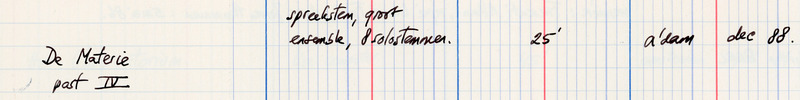 spreekstem, groot
ensemble, 8 solostemmen. 25' a'dam dec 88.
De Materie
part IV